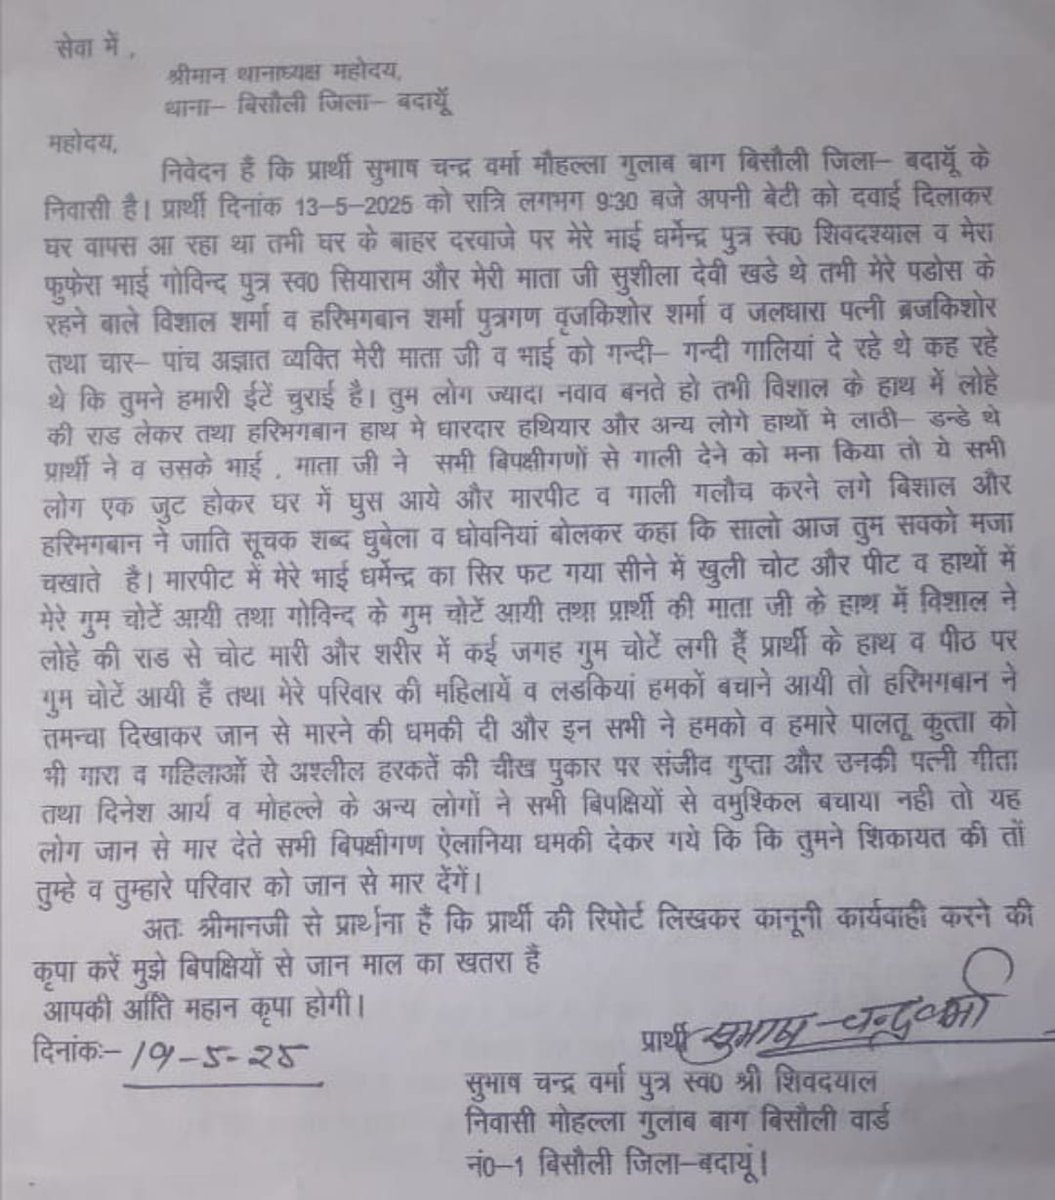 सेवा में ,
श्रीमान थानाध्यक्ष महोदय,
थाना– बिसौली जिला– बदायूँ
महोदय,
निवेदन हैं कि प्रार्थी सुभाष चन्द्र वर्मा मौहल्ला गुलाब बाग बिसौली जिला– बदायूँ के
निवासी है। प्रार्थी दिनांक 13–5–2025 को रात्रि लगभग 9:30 बजे अपनी बेटी को दवाई दिलाकर
घर वापस आ रहा था तभी घर के बाहर दरवाजे पर मेरे भाई धर्मेन्द्र पुत्र स्व0 शिवदश्याल व मेरा
फुफेरा भाई गोविन्द पुत्र स्व0 सियाराम और मेरी माता जी सुशीला देवी खडे थे तभी मेरे पडोस के
रहने बाले विशाल शर्मा व हरिभगबान शर्मा पुत्रगण वृजकिशोर शर्मा व जलधारा पत्नी ब्रजकिशोर
तथा चार– पांच अज्ञात व्यक्ति मेरी माता जी व भाई को गन्दी– गन्दी गालियां दे रहे थे कह रहे
थे कि तुमने हमारी ईटें चुराई है। तुम लोग ज्यादा नवाव बनते हो तभी विशाल के हाथ में लोहे
की राड लेकर तथा हरिभगबान हाथ मे धारदार हथियार और अन्य लोगे हाथों मे लाठी– डन्डे थे
प्रार्थी ने व उसके भाई , माता जी ने सभी बिपक्षीगणों से गाली देने को मना किया तो ये सभी
लोग एक जुट होकर घर में घुस आये और मारपीट व गाली गलौच करने लगे बिशाल और
हरिभगबान ने जाति सूचक शब्द घुबेला व धोवनियां बोलकर कहा कि सालो आज तुम सवको मजा
चखाते है। मारपीट में मेरे भाई धर्मेन्द्र का सिर फट गया सीने में खुली चोट और पीट व हाथों में
मेरे गुम चोटें आयी तथा गोविन्द के गुम चोटें आयी तथा प्रार्थी की माता जी के हाथ में विशाल ने
लोहे की राड से चोट मारी और शरीर में कई जगह गुम चोटें लगी हैं प्रार्थी के हाथ व पीठ पर
गुम चोटें आयी हैं तथा मेरे परिवार की महिलायें व लडकियां हमकों बचाने आयी तो हरिभगबान ने
तमन्चा दिखाकर जान से मारने की धमकी दी और इन सभी ने हमको व हमारे पालतू कुत्ता को
भी गारा व गहिलाओं से अश्लील हरकतें की चीख पुकार पर संजीव गुप्ता और उनकी पत्नी गीता
तथा दिनेश आर्य व मोहल्ले के अन्य लोगों ने सभी बिपक्षियों से वमुश्किल बचाया नही तो यह
लोग जान से मार देते सभी बिपक्षीगण ऐलानिया धमकी देकर गये कि कि तुमने शिकायत की तों
तुम्हे व तुम्हारे परिवार को जान से मार देंगें।
अतः श्रीमानजी से प्रार्थाना हैं कि प्रार्थी की रिपोर्ट लिखकर कानूनी कार्यवाही करने की
कृपा करें मुझे बिपक्षियों से जान माल का खतरा हैं
आपकी अति महान कृपा होगी।
दिनांकः– 19–5–25
प्रार्थी सुभाष चन्द्र वर्मा
सुभाष चन्द्र वर्मा पुत्र स्व0 श्री शिवदयाल
निवासी मोहल्ला गुलाब बाग बिसौली वार्ड
नं0–1 बिसौली जिला–बदायूं।